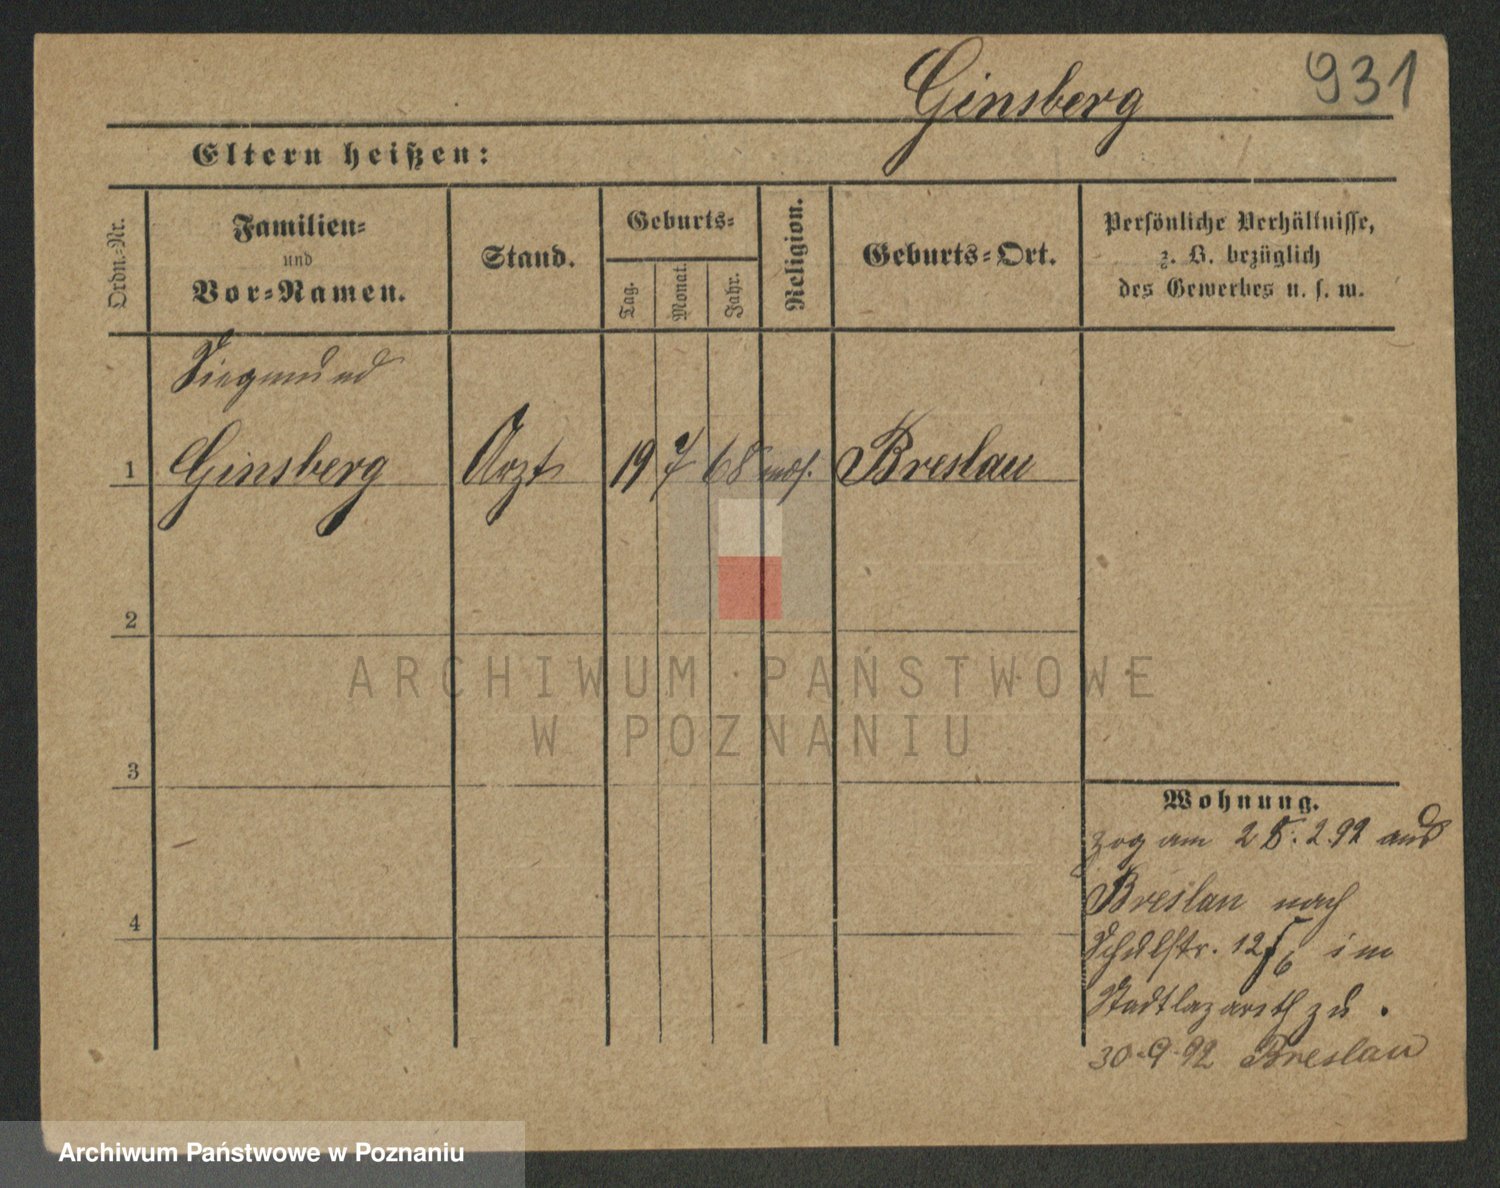 Ginsberg 931
Eltern heißen:
Ordn.-Nr.
Familien-
und
Vor-Namen.
Stand.
Geburts-
Tag.
Monat.
Jahr.
Religion.
Geburts-Ort.
Persönliche Verhältnisse,
z. B. bezüglich
des Gewerbes u. s. w.
Siegmund
1 Ginsberg Arzt 19 7 68 mos. Breslau
2
ARCHIWUM PAŃSTWOWE
W POZNANIU
3
Wohnung.
zog am 28.2.92 aus
Breslau nach
4
Schulstr. 12 im
Stadtlazareth zu.
30.9.92 Breslau
Archiwum Państwowe w Poznaniu